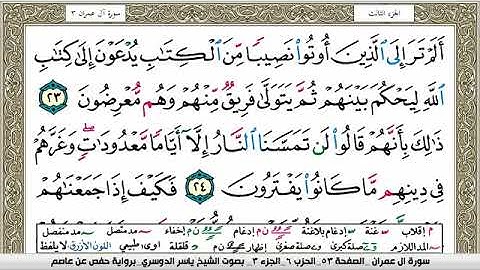 الجزء الثالث
سورة آل عمران ٣
أَلَمْ تَرَ إِلَى الَّذِينَ أُوتُوا نَصِيبًا مِّنَ الْكِتَابِ يُدْعَوْنَ إِلَىٰ كِتَابِ
اللَّهِ لِيَحْكُمَ بَيْنَهُمْ ثُمَّ يَتَوَلَّىٰ فَرِيقٌ مِّنْهُمْ وَهُم مُّعْرِضُونَ ٢٣
ذَٰلِكَ بِأَنَّهُمْ قَالُوا لَن تَمَسَّنَا النَّارُ إِلَّا أَيَّامًا مَّعْدُودَاتٍ ۖ وَغَرَّهُمْ
فِي دِينِهِم مَّا كَانُوا يَفْتَرُونَ ٢٤ فَكَيْفَ إِذَا جَمَعْنَاهُمْ
م إقلاب غنة إدغام بلاغنة إدغام إخفاء مد متصل مد منفصل
المد اللازم صلة كبرى صلة صغرى إظهار قلقلة طبيعي اللون الأزرق لا يلفظ
سورة آل عمران _ الصفحة ٥٣ _ الحزب ٦ _ الجزء ٣ _ بصوت الشيخ ياسر الدوسري _ برواية حفص عن عاصم